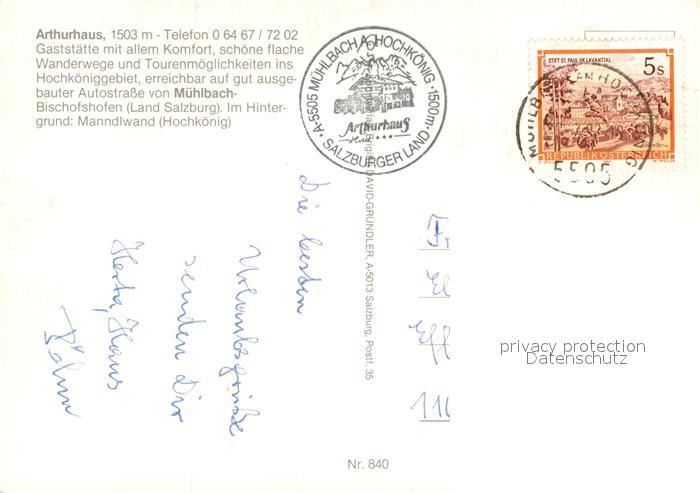 Arthurhaus, 1503 m - Telefon 0 64 67 / 72 02
Gaststätte mit allem Komfort, schöne flache
Wanderwege und Tourenmöglichkeiten ins
Hochköniggebiet, erreichbar auf gut ausge-
bauter Autostraße von Mühlbach-
Bischofshofen (Land Salzburg). Im Hinter-
grund: Manndlwand (Hochkönig)
A-5505 MÜHLBACH A. HOCHKÖNIG · 1500m ·
SALZBURGER LAND
Arthurhaus
STIFT ST. PAUL IM LAVANTTAL
5s
REPUBLIK ÖSTERREICH
5505
DAVID-GRUNDLER, A-5013 Salzburg, Postf. 35
Die besten
Urlaubsgrüße
senden Dir
Herta, Hans
Fr
El
Eff
110
privacy protection
Datenschutz
Nr. 840